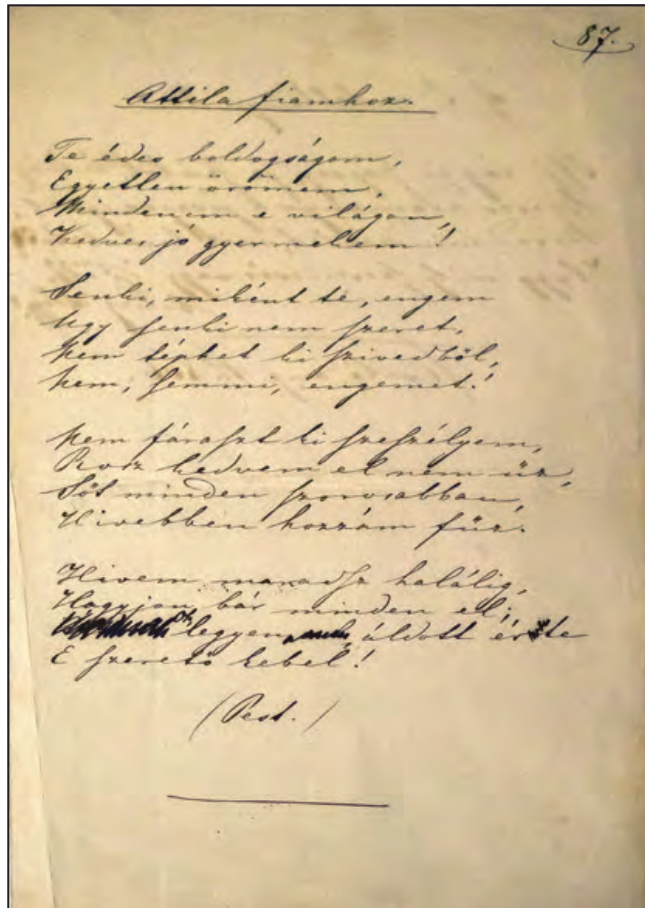 87.
Attila fiamhoz.
Te édes boldogságom,
Egyetlen örömem,
Mindenem e világon,
Kedves jó gyermekem!
Senki, miként te, engem
Ugy senki nem szeret,
Nem téphet ki szivedből,
Nem, semmi, engemet!
Nem fáraszt ki szeszélyem,
Rosz kedvem el nem űz,
Sőt minden szorosabban,
Hivebben hozzám fűz.
Hivem maradsz halálig,
Hagyjon bár minden el;
legyen áldott érte
E szerető kebel!
(Pest.)